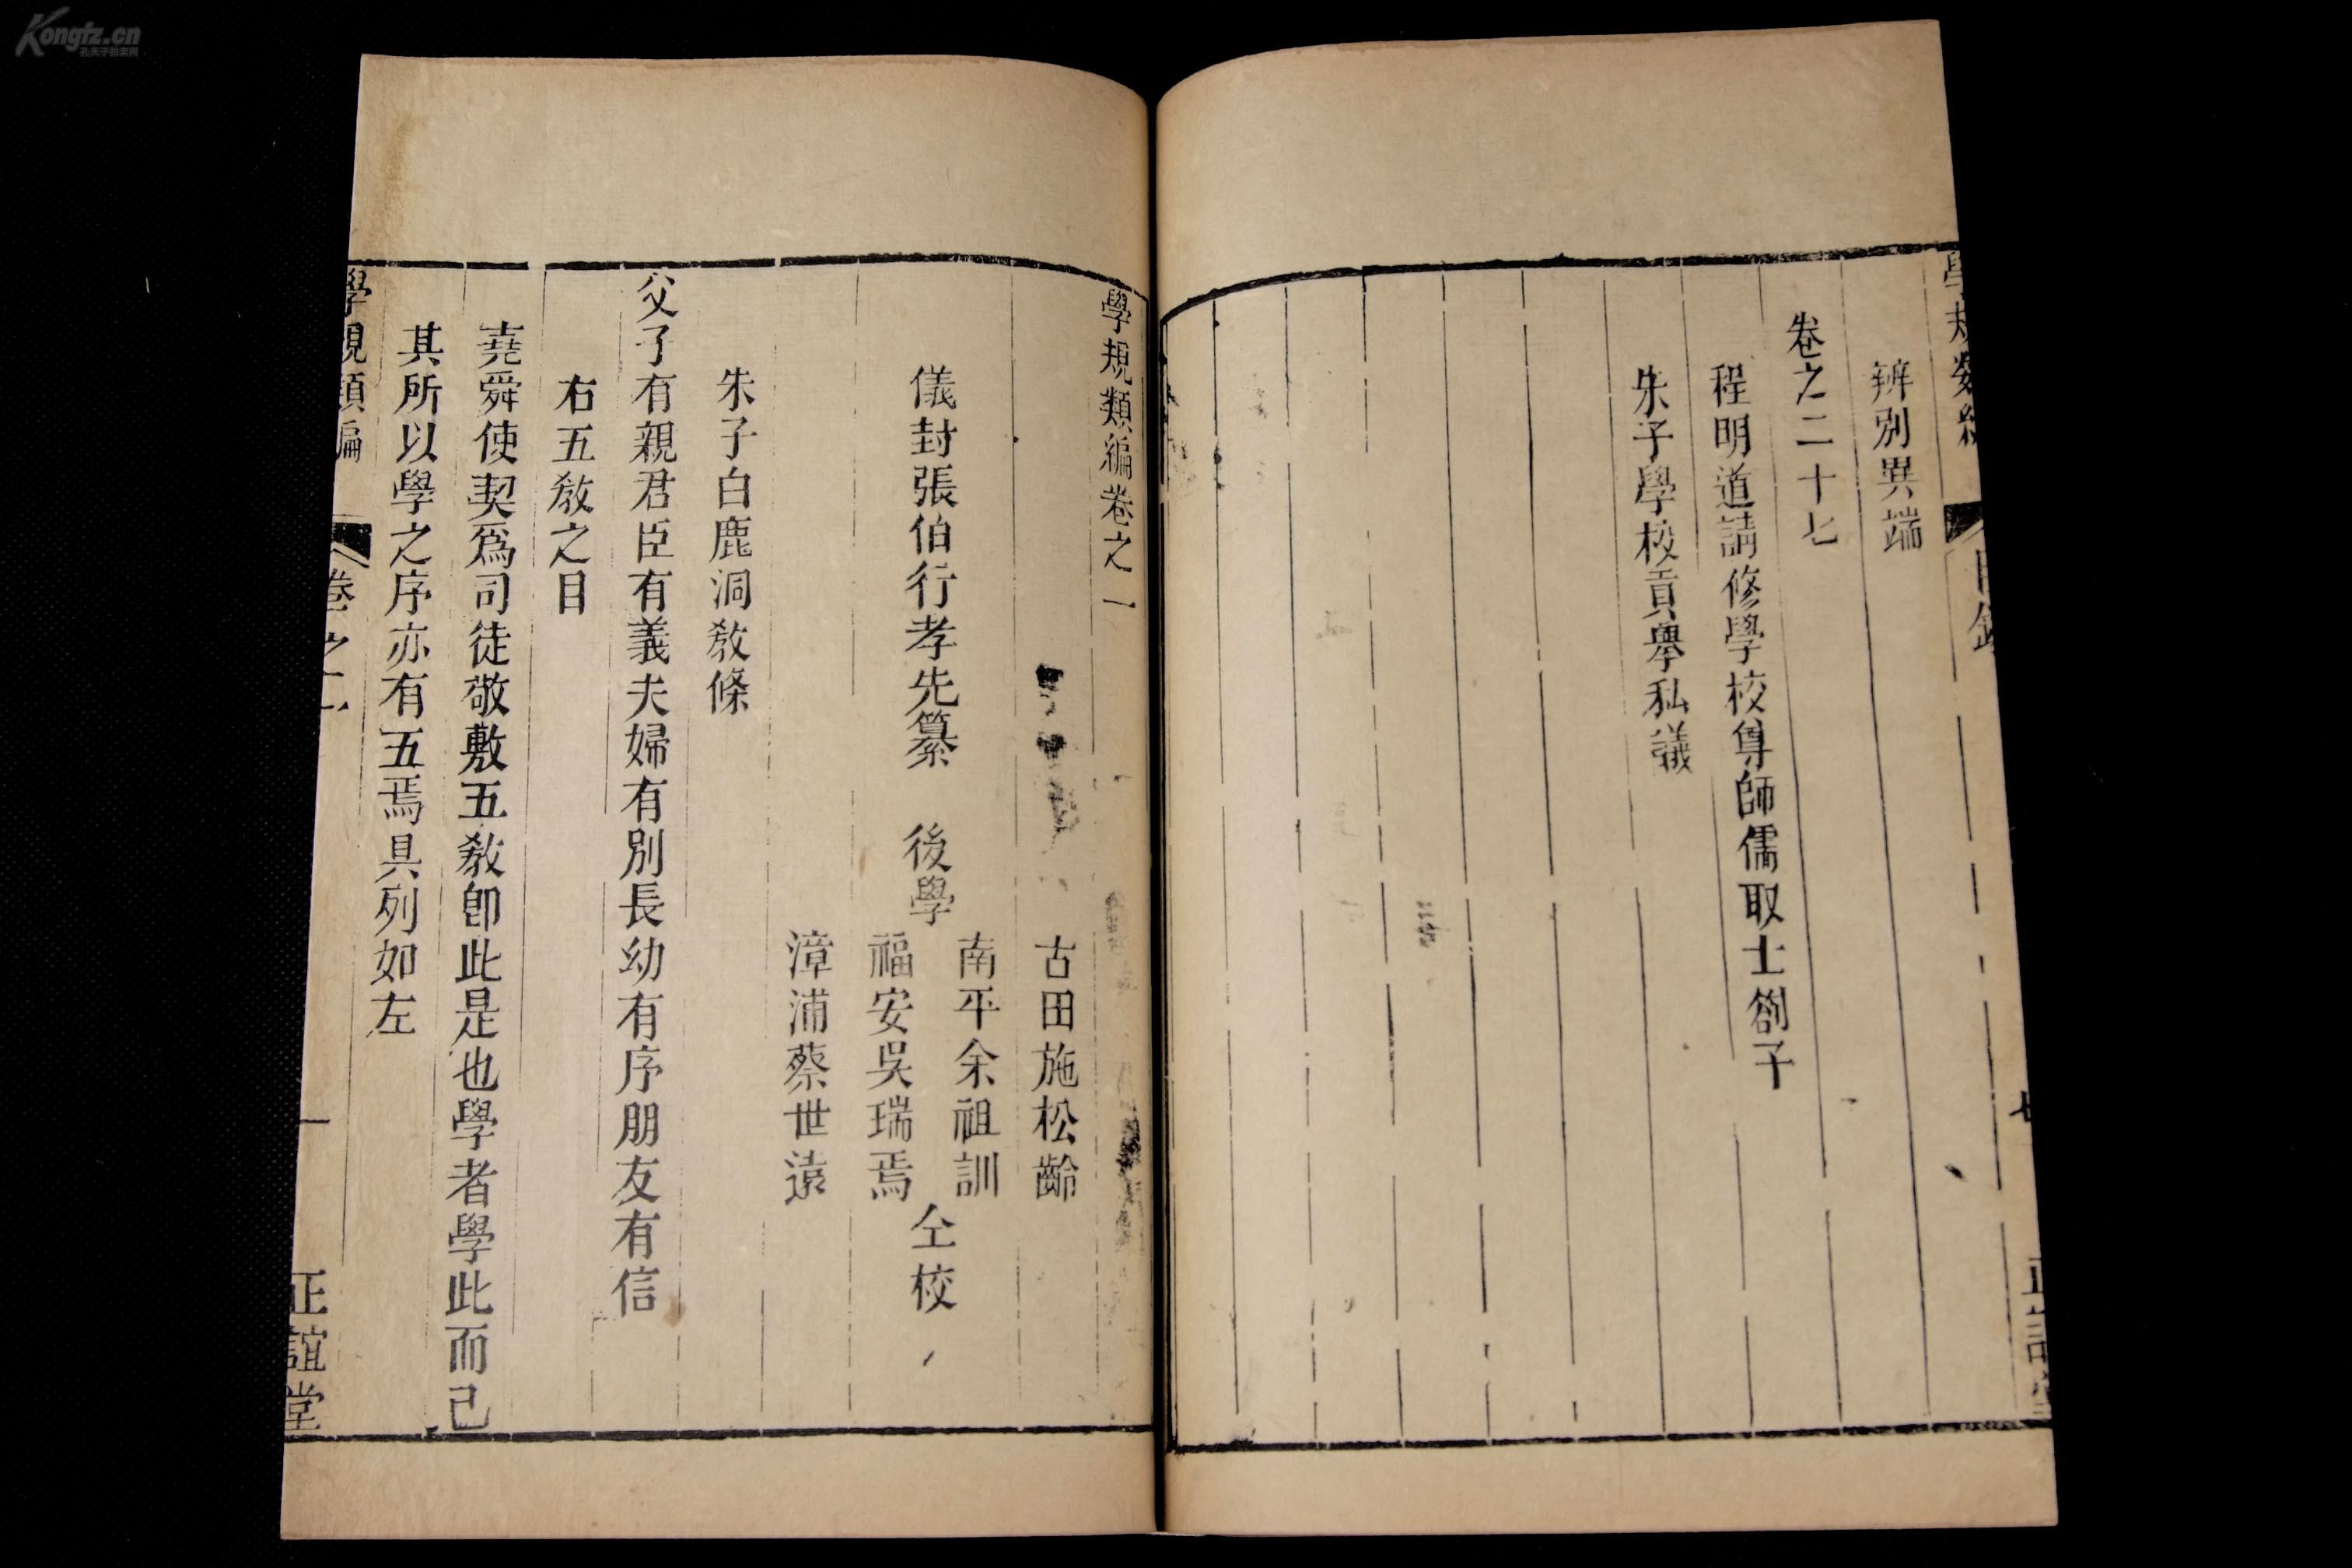 Kongfz.cn
孔夫子拍卖网
辨別異端
卷之二十七
程明道請修學校尊師儒取士劄子
朱子學校貢舉私議
學規類編卷之一
古田施松齡
儀封張伯行孝先纂 後學
南平余祖訓
福安吳瑞焉
仝校
漳浦蔡世遠
朱子白鹿洞敎條
父子有親君臣有義夫婦有別長幼有序朋友有信
右五敎之目
堯舜使契爲司徒敬敷五敎卽此是也學者學此而已
其所以學之序亦有五焉具列如左
學規類編 卷之一 一 正誼堂